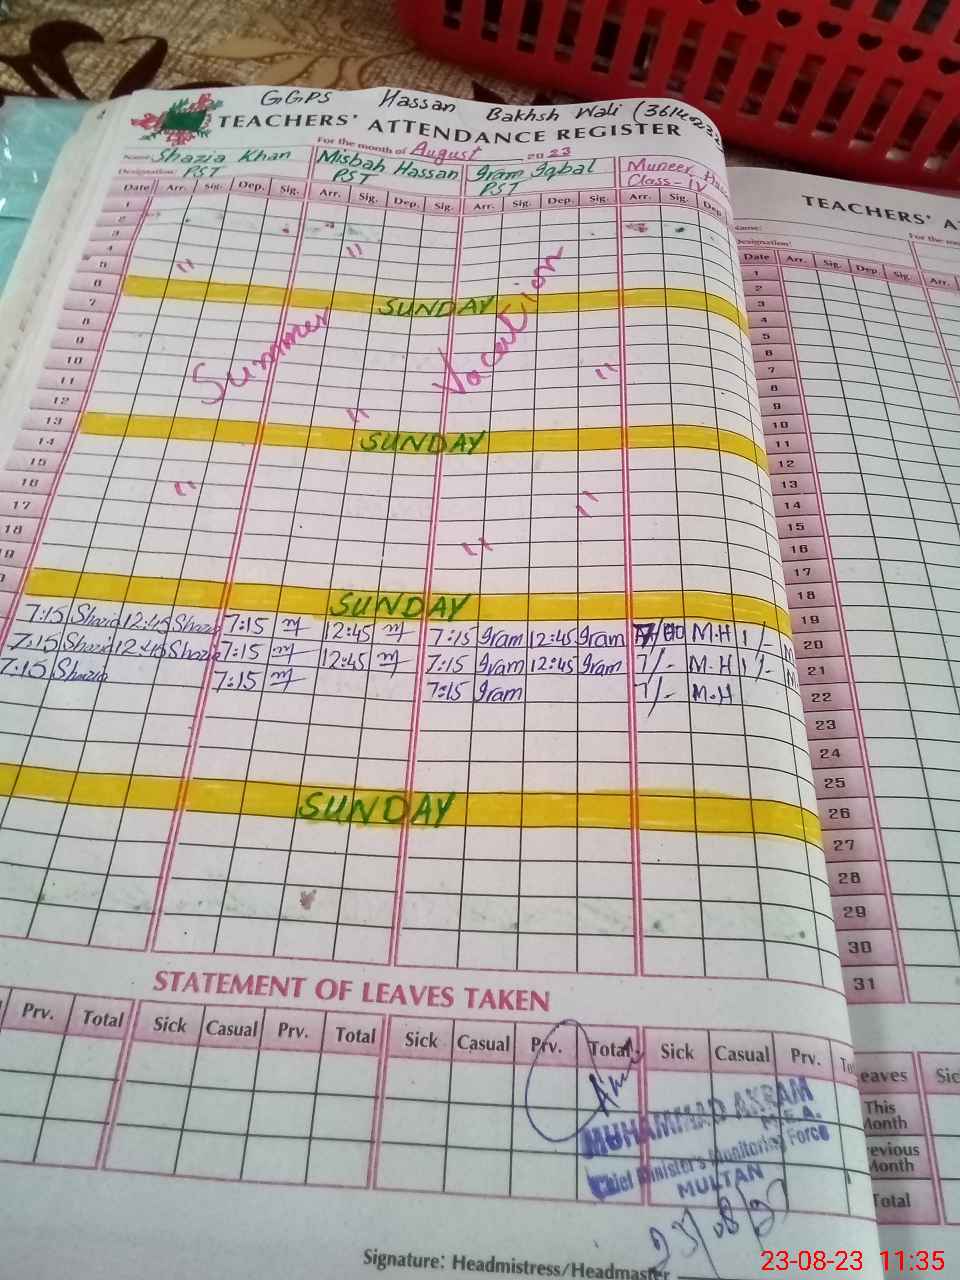 GGPS Hassan Bakhsh Wali
TEACHERS' ATTENDANCE REGISTER
For the month of August 2023
Name: Shazia Khan Misbah Hassan Iram Iqbal Muneer
Designation: PST PST PST Class-IV
Date Arr. Sig. Dep. Sig. Arr. Sig. Dep. Sig. Arr. Sig. Dep. Sig. Arr. Sig. Dep.
1
2
3
4
5 " "
6 SUNDAY
7
8
9
Summer Vacation
10
11 "
12 "
13 SUNDAY
14
15
16 " "
17
18 "
SUNDAY
7:15 Shazia 12:45 Shazia 7:15 m 12:45 m 7:15 Iram 12:45 Iram 7/00 M.H 1/-
7:15 Shazia 12:45 Shazia 7:15 m 12:45 m 7:15 Iram 12:45 Iram 7/- M.H 1/-
7:15 Shazia 7:15 m 7:15 Iram 7/- M.H
SUNDAY
STATEMENT OF LEAVES TAKEN
Prv. Total Sick Casual Prv. Total Sick Casual Prv. Total Sick Casual Prv.
MUHAMMAD AKRAM
M.E.A.
Chief Minister's Monitoring Force
MULTAN
23/08/23
Signature: Headmistress/Headmaster
TEACHERS'
For the
Date Arr. Sig. Dep. Sig. Arr.
1
2
3
4
5
6
7
8
9
10
11
12
13
14
15
16
17
18
19
20
21
22
23
24
25
26
27
28
29
30
31
This
Month
Month
Total
23-08-23 11:35